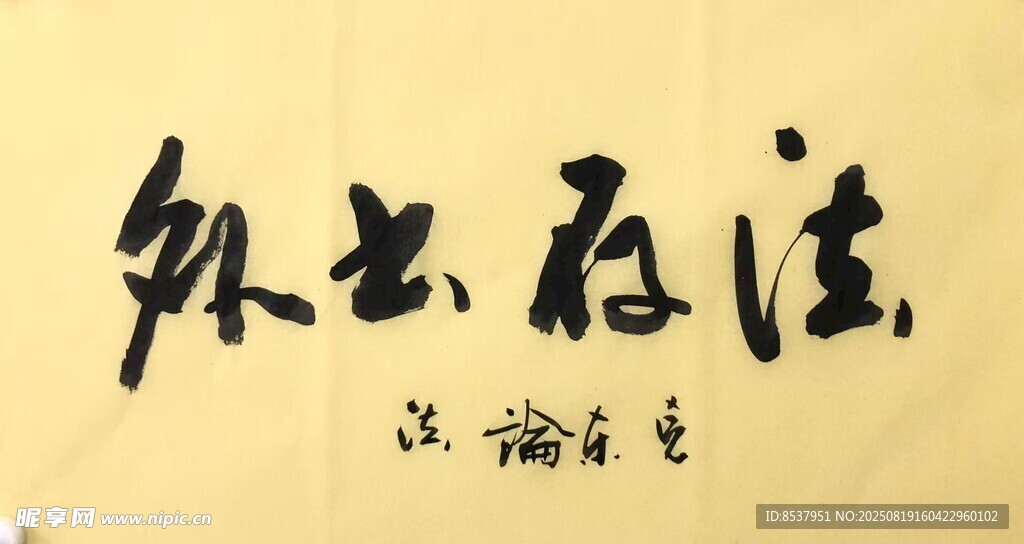 法外
东論法
昵享网 www.nipic.cn
ID:8537951 NO:20250819160422960102